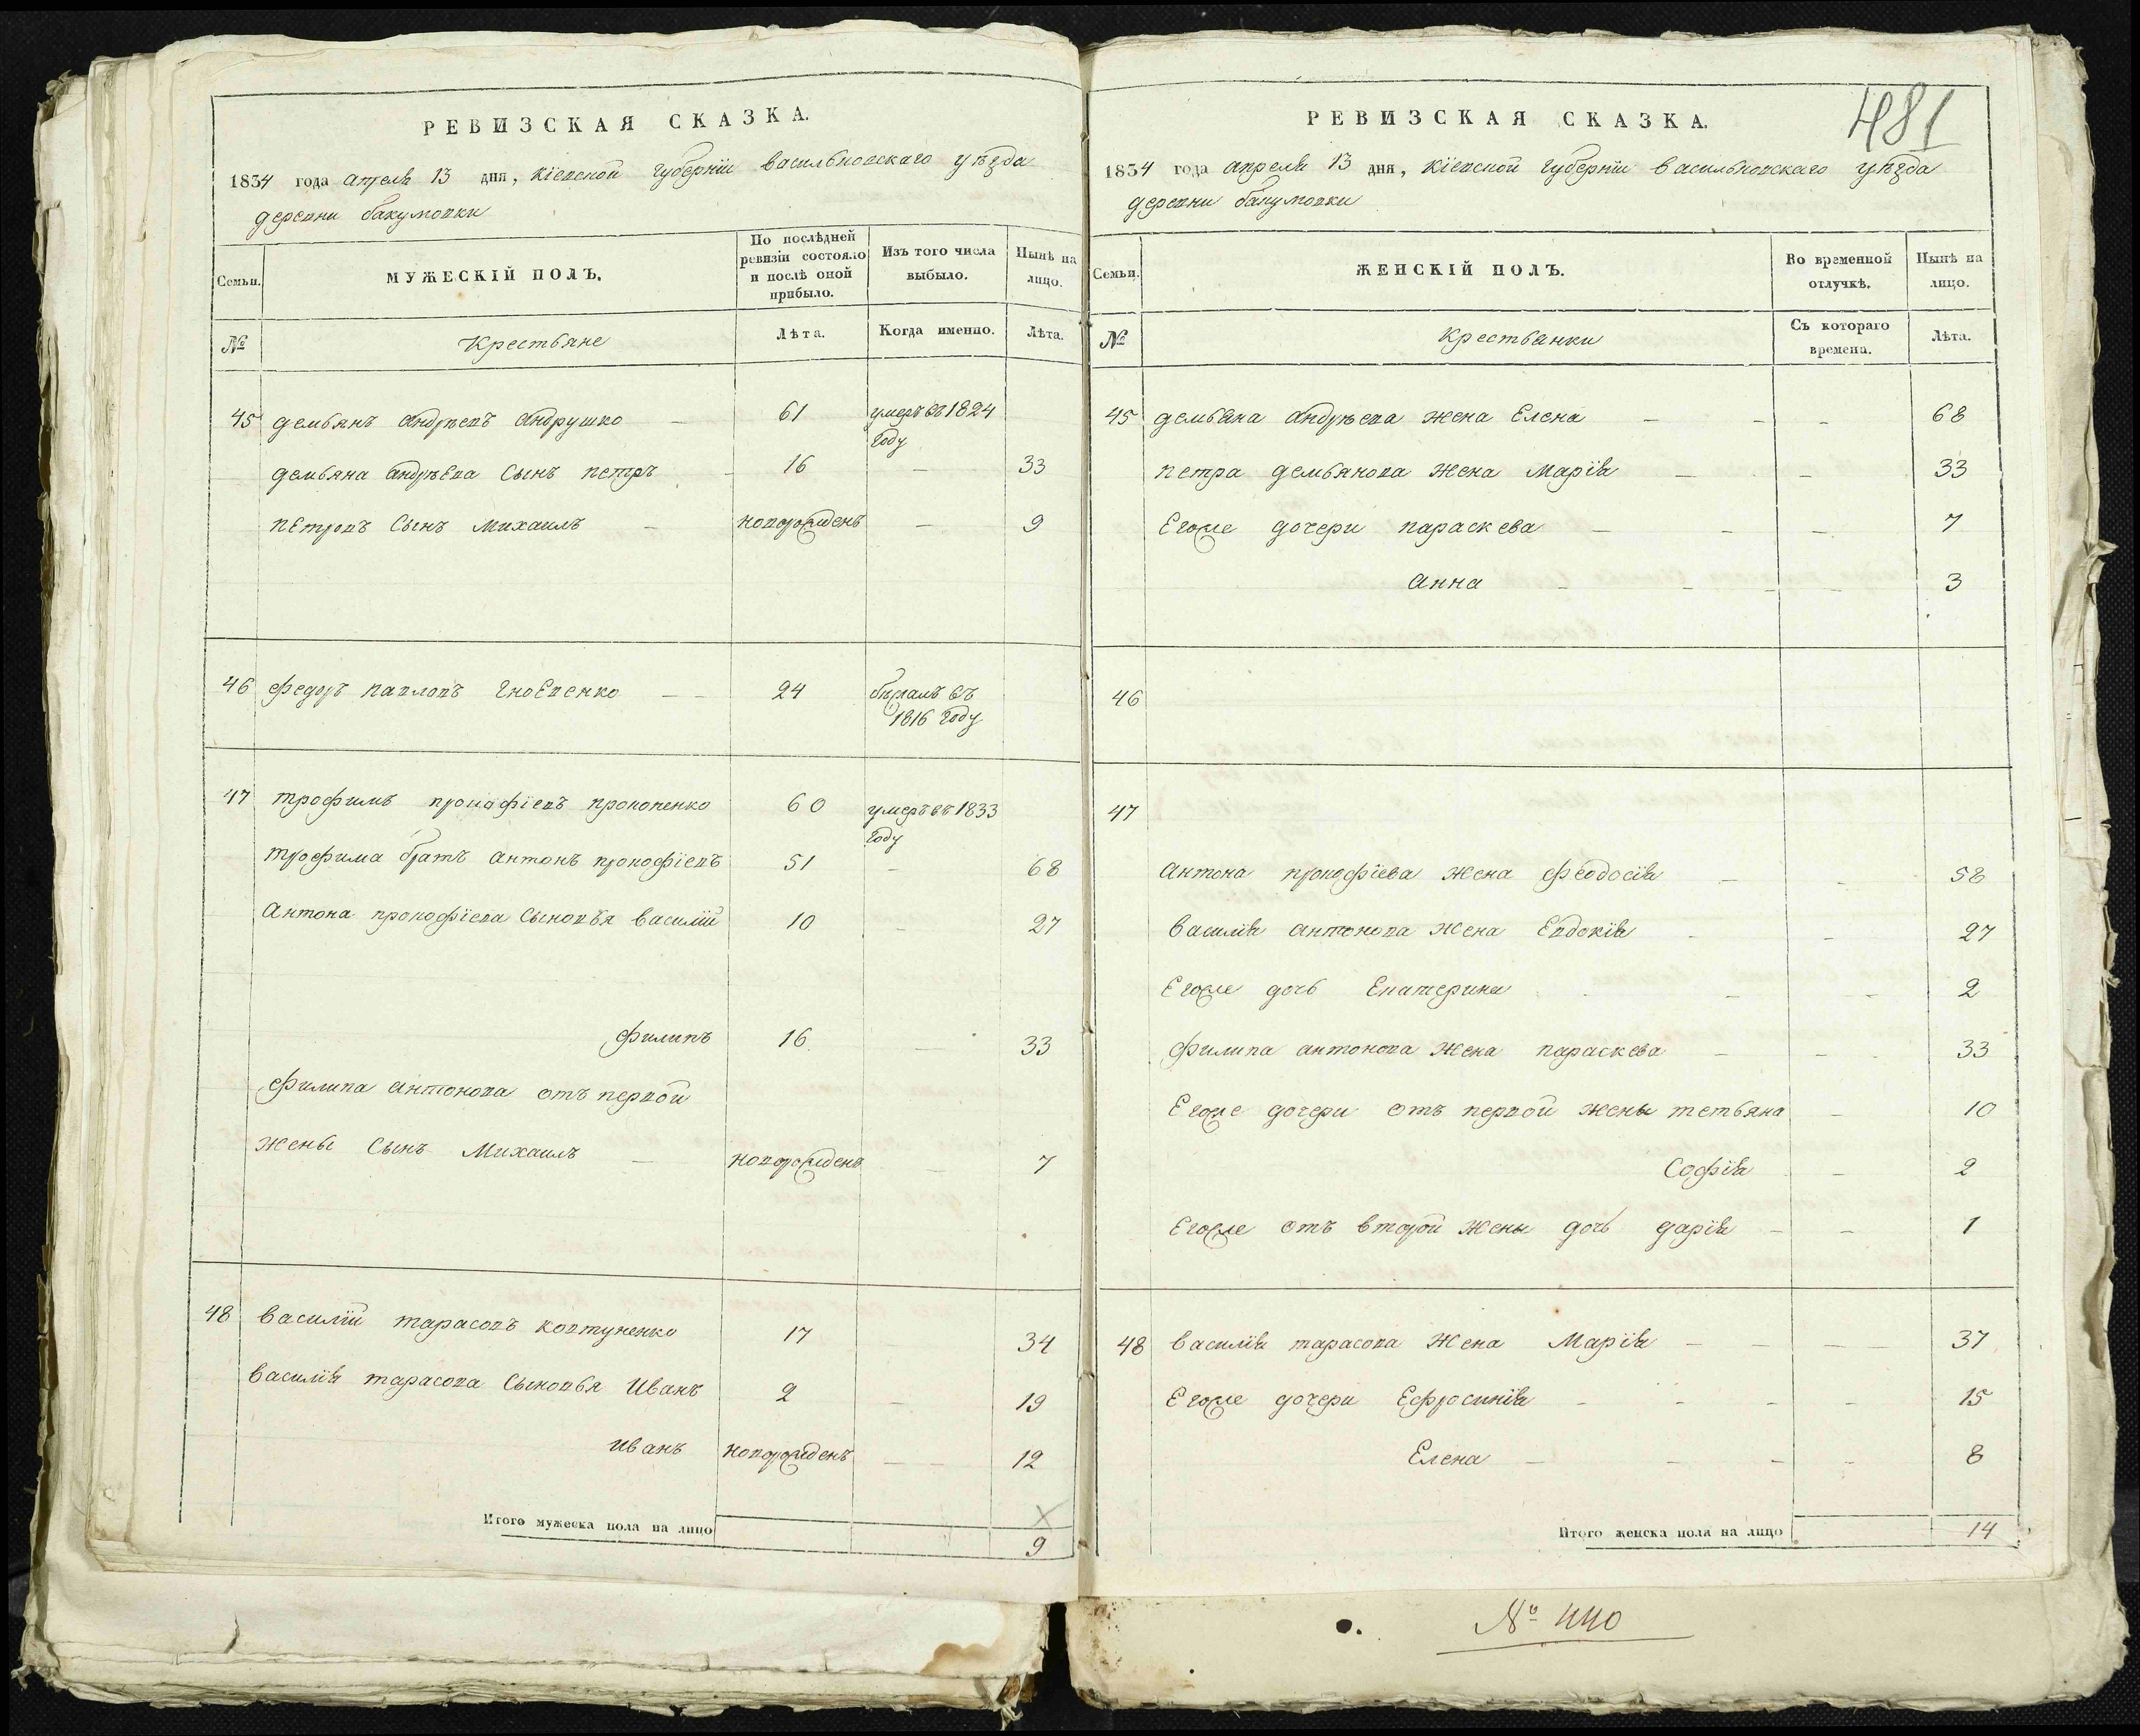 РЕВИЗСКАЯ СКАЗКА.
1834 года апреля 13 дня, Кіевской губерніи васильковскаго уѣзда
деревни бакумовки
Семьи.
МУЖЕСКІЙ ПОЛЪ.
По послѣдней ревизіи состояло и послѣ оной прибыло.
Изъ того числа выбыло.
Нынѣ на лицо.
№
Крестьяне
Лѣта.
Когда именно.
Лѣта.
45 демьянъ андрѣевъ андрушко — 61 умеръ въ 1824
году
демьяна андрѣева сынъ петръ — 16 — 33
петровъ сынъ михаилъ — новорожденъ — 9
46 федоръ павловъ гноевенко — — 24 бѣжалъ въ
1816 году
47 трофимъ прокофіевъ прокопенко 60 умеръ въ 1833
году
трофима братъ антонъ прокофіевъ 51 — 68
антона прокофіева сыновья василій 10 — 27
филипъ 16 — 33
филипа антонова отъ первой
жены сынъ михаилъ — новорожденъ — 7
48 василій тарасовъ ковтуненко 17 — 34
василія тарасова сыновья иванъ 2 — 19
иванъ новорожденъ — — 12
Итого мужеска пола на лицо
9
481
РЕВИЗСКАЯ СКАЗКА.
1834 года апреля 13 дня, кіевской губерніи васильковскаго уѣзда
деревни бакумовки
Семьи.
ЖЕНСКІЙ ПОЛЪ.
Во временной отлучкѣ.
Нынѣ на лицо.
№
Крестьянки
Съ котораго времени.
Лѣта.
45 демьяна андрѣева жена Елена — — — 68
петра демьянова жена марія — — 33
Егоже дочери параскева — — — 7
анна — — — — 3
46
47
антона прокофіева жена феодосія — — 58
василія антонова жена Евдокія — — 27
Егоже дочь Екатерина — — 2
филипа антонова жена параскева — — 33
Егоже дочери отъ первой жены тетьяна — 10
Софія — 2
Егоже отъ второй жены дочь дарія — — 1
48 василія тарасова жена марія — — — — 37
Егоже дочери Ефросинія — — — — 15
Елена — — — — 8
Итого женска пола на лицо 14
№ 440